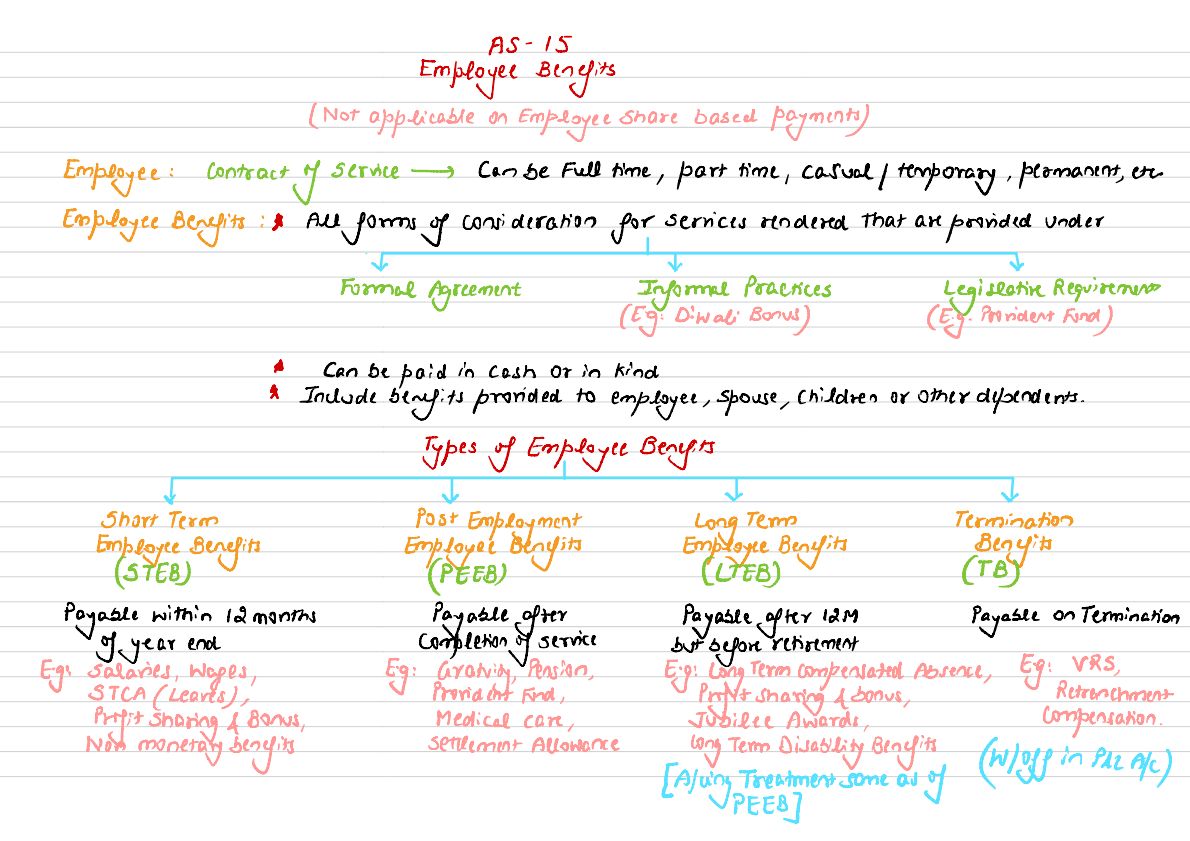 AS-15
Employee Benefits
(Not applicable on Employee share based payments)
Employee: Contract of Service → Can be Full time, part time, casual / temporary, permanent, etc
Employee Benefits: * All forms of consideration for services rendered that are provided under
Formal Agreement
Informal Practices
(Eg: Diwali Bonus)
Legislative Requirements
(Eg. Provident Fund)
* Can be paid in cash or in kind
* Include benefits provided to employee, spouse, children or other dependents.
Types of Employee Benefits
Short Term
Employee Benefits
(STEB)
Payable within 12 months
of year end
Eg: Salaries, Wages,
STCA (Leaves),
Profit Sharing & Bonus,
Non monetary benefits
Post Employment
Employee Benefits
(PEEB)
Payable after
Completion of service
Eg: Gratuity, Pension,
Provident Fund,
Medical care,
Settlement Allowance
Long Term
Employee Benefits
(LTEB)
Payable after 12M
but before retirement
Eg: Long Term Compensated Absence,
Profit sharing & bonus,
Jubilee Awards,
Long Term Disability Benefits
[A/cing Treatment same as of
PEEB]
Termination
Benefits
(TB)
Payable on Termination
Eg: VRS,
Retrenchment
Compensation.
(W/off in P&L A/c)